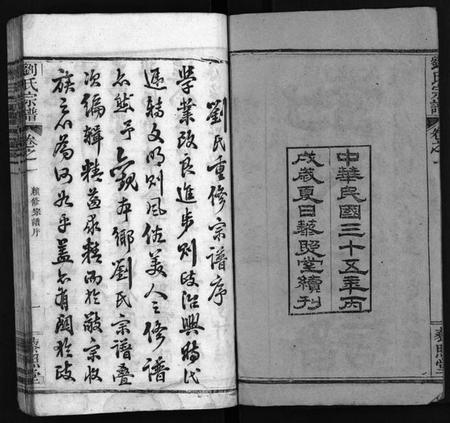 劉氏宗譜
卷之一
藜照堂
中華民國三十五年丙
戌歲夏日藜照堂續刊
劉氏重修宗譜序
學業改良進步則政治興時代
遞轉文明則風俗美人之修譜
亦然予觀本鄉劉氏宗譜疊
次編輯精益求精而於敬宗收
族之名為何如乎蓋亦有關於政
劉氏宗譜
卷之一
續修宗譜序
一
藜照堂